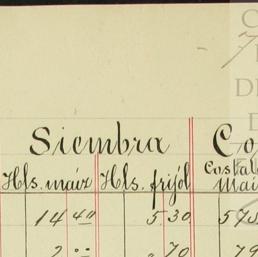 Siembra Co
Hls. maíz Hls. frijol Costal
Mai
14 40 5.30 575
2 00 .70 79